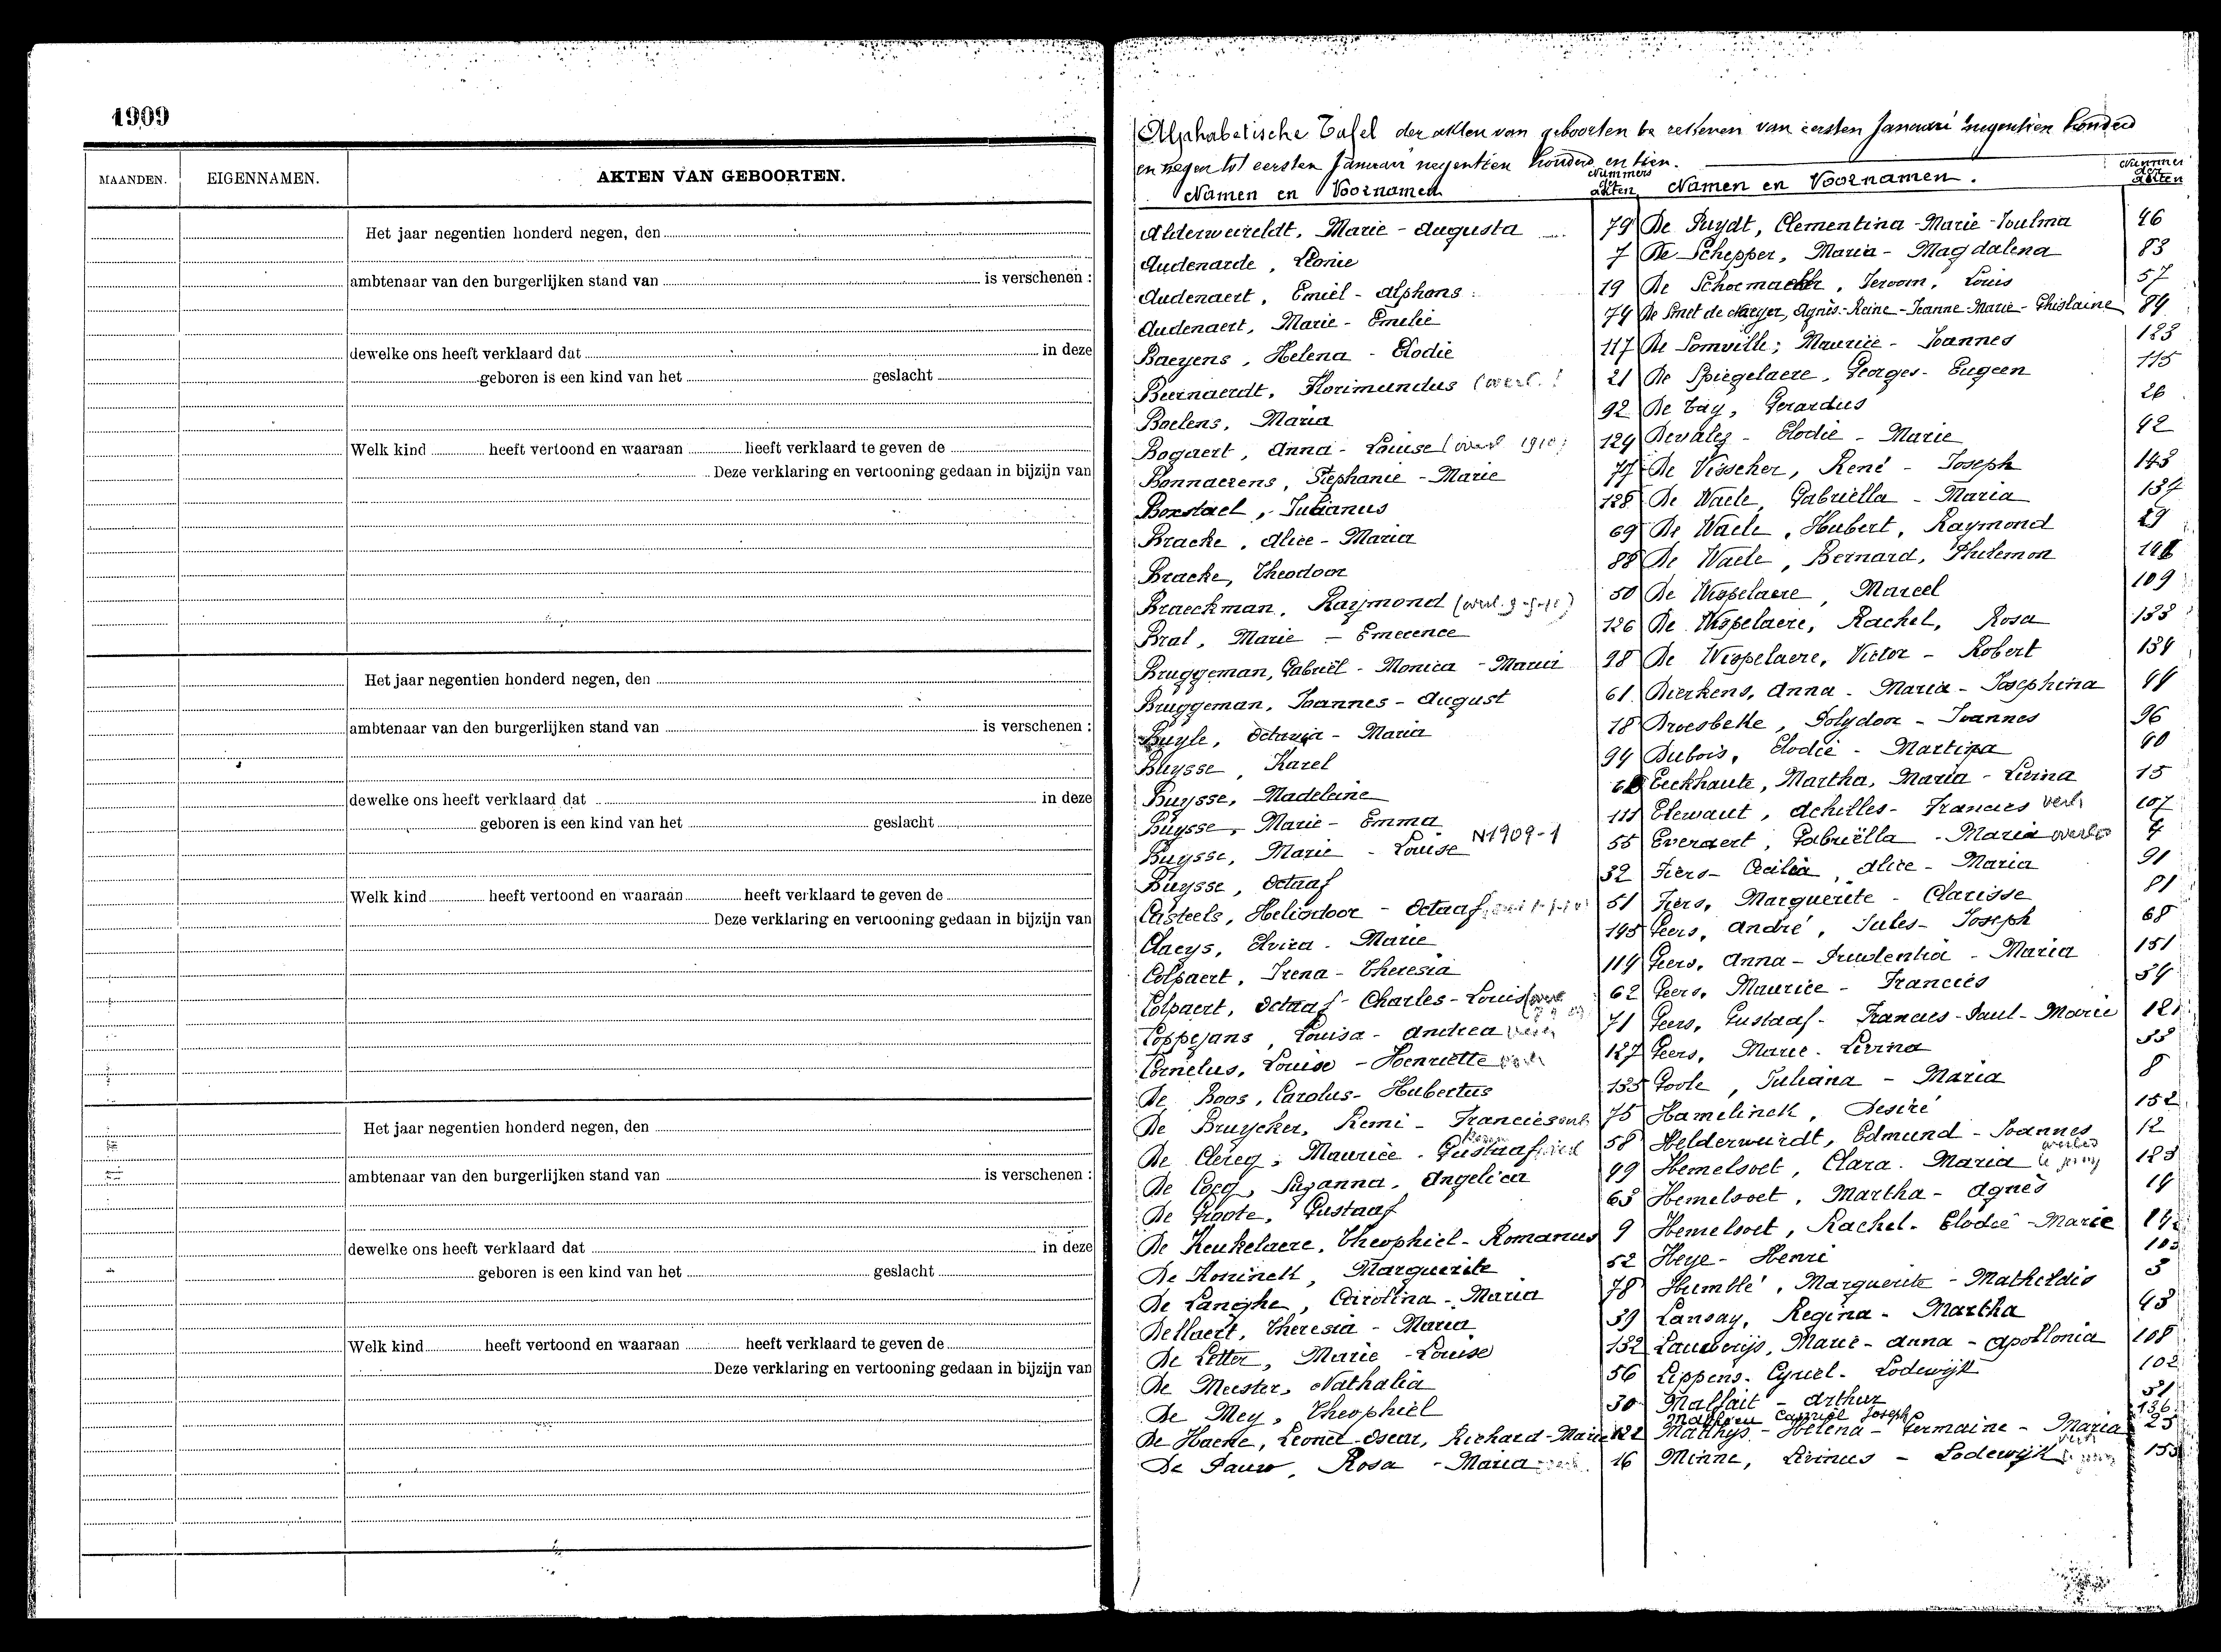 1909
MAANDEN. EIGENNAMEN. AKTEN VAN GEBOORTEN.
Het jaar negentien honderd negen, den
ambtenaar van den burgerlijken stand van is verschenen :
dewelke ons heeft verklaard dat in deze
geboren is een kind van het geslacht
Welk kind heeft vertoond en waaraan heeft verklaard te geven de
Deze verklaring en vertooning gedaan in bijzijn van
Het jaar negentien honderd negen, den
ambtenaar van den burgerlijken stand van is verschenen :
dewelke ons heeft verklaard dat in deze
geboren is een kind van het geslacht
Welk kind heeft vertoond en waaraan heeft verklaard te geven de
Deze verklaring en vertooning gedaan in bijzijn van
Het jaar negentien honderd negen, den
ambtenaar van den burgerlijken stand van is verschenen :
dewelke ons heeft verklaard dat in deze
geboren is een kind van het geslacht
Welk kind heeft vertoond en waaraan heeft verklaard te geven de
Deze verklaring en vertooning gedaan in bijzijn van
Alphabetische Tafel der akten van geboorten te rekenen van eersten Januari negentien honderd
en negen tot eersten Januari negentien honderd en tien.
Namen en Voornamen Nummers der akten
Alderweireldt, Marie - Augusta 79
Audenarde, Leonie 7
Audenaert, Emiel - Alphons 19
Audenaert, Marie - Emelie 74
Baeyens, Helena - Elodie 117
Beernaerdt, Florimundus (overl.) 21
Boelens, Maria 92
Bogaert, Anna - Louise (overl 1910) 124
Bonnaerens, Stephanie - Marie 77
Boxstael, Julianus 128
Bracke, Alice - Maria 69
Bracke, Theodoor 88
Braeckman, Raymond 50
Bral, Marie - Emerence 126
Bruggeman, Gabriël - Monica - Maria 98
Bruggeman, Joannes - August 61
Buyle, Octavia - Maria 18
Buysse, Karel 94
Buysse, Madeleine
Buysse, Marie - Emma 111
Buysse, Marie - Louise N1909-1 55
Buysse, Octaaf 32
Casteels, Heliodoor - Octaaf 51
Claeys, Elvira - Marie 145
Colpaert, Irena - Theresia 114
Colpaert, Octaaf - Charles - Louis 62
Coppejans, Louisa - Andrea 71
Cornelus, Louise - Henriette 127
De Boos, Carolus - Hubertus 135
De Bruycker, Remi - Francies overl. 75
De Clercq, Maurice - Gustaaf 58
De Cocq, Suzanna, Angelica 49
De Groote, Gustaaf 63
De Keukelaere, Theophiel - Romanus 9
De Koninck, Marguerite 52
De Langhe, Carolina - Maria 78
Dellaert, Theresia - Maria 39
De Letter, Marie - Louise 132
De Meester, Nathalia 56
De Mey, Theophiel 30
De Haene, Leonel - Oscar, Richard - Marie 122
De Pauw, Rosa - Maria 16
Namen en Voornamen. Nummer der akten
De Puydt, Clementina - Marie - Zoulma 46
De Schepper, Maria - Magdalena 83
De Schoemacker, Jeroom, Louis 57
De Smet de Naeyer, Agnès - Reine - Jeanne - Marie - Ghislaine 84
De Somville; Maurice - Joannes 123
De Spiegelaere, Georges - Eugeen 115
De Tay, Gerardus 26
Devalez - Elodie - Marie 42
De Visscher, René - Joseph 143
De Waele, Gabriëlla - Maria 137
De Waele, Hubert, Raymond 29
De Waele, Bernard, Philemon
De Wispelaere, Marcel 109
De Wispelaere, Rachel, Rosa 133
De Wispelaere, Victor - Robert 134
Dierkens, Anna - Maria - Josephina 44
Droesbeke, Polydoor - Joannes 96
Dubois, Elodie - Martina 40
Eeckhaute, Martha, Maria - Livina 15
Elewaut, Achilles - Francies verl. 107
Everaert, Gabriëlla - Maria overl. 4
Fiers - Cecilia, Alice - Maria 91
Fiers, Marguerite - Clarisse 81
Geers, André, Jules - Joseph 68
Geers, Anna - Prudentia - Maria 151
Geers, Maurice - Francies 54
Geers, Gustaaf - Francies - Paul - Marie 121
Geers, Marie - Livina 33
Goole, Juliana - Maria 8
Hamelinck, Desiré 152
Helderwerdt, Edmund - Joannes 12
Hemelsoet, Clara - Maria 123
Hemelsoet, Martha - Agnès 14
Hemelsoet, Rachel - Elodie - Marie
Heye - Henri 103
Humblé, Marguerite - Matheldis 3
Lansay, Regina - Martha 43
Lauwerijs, Marie - Anna - Apollonia 108
Lippens - Cyriel - Lodewijk 102
Malfait - Arthur 31
Mattheeu Camiel Joseph 136
Matthys - Helena - Germaine - Maria 25
Minne, Livinus - Lodewijk 153